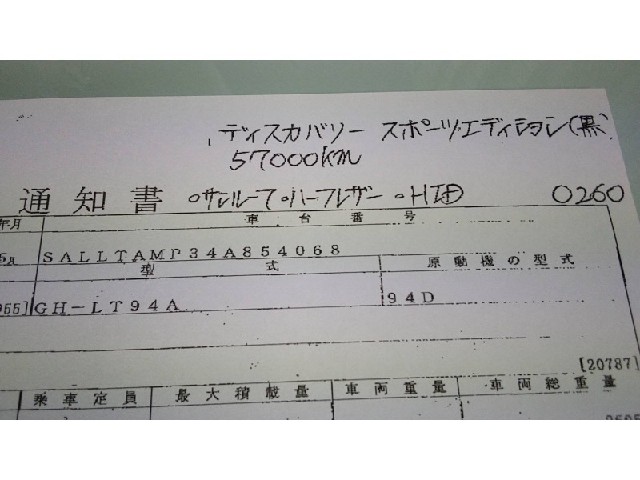 ディスカバリー スポーツ・エディション(黒)
57000km
通知書 ・サンルーフ・ハーフレザー ・HID 0260
年月 車台番号
5月 SALLTAMP34A854068
型式 原動機の型式
955] GH-LT94A 94D
[20787]
乗車定員 最大積載量 車両重量 車両総重量